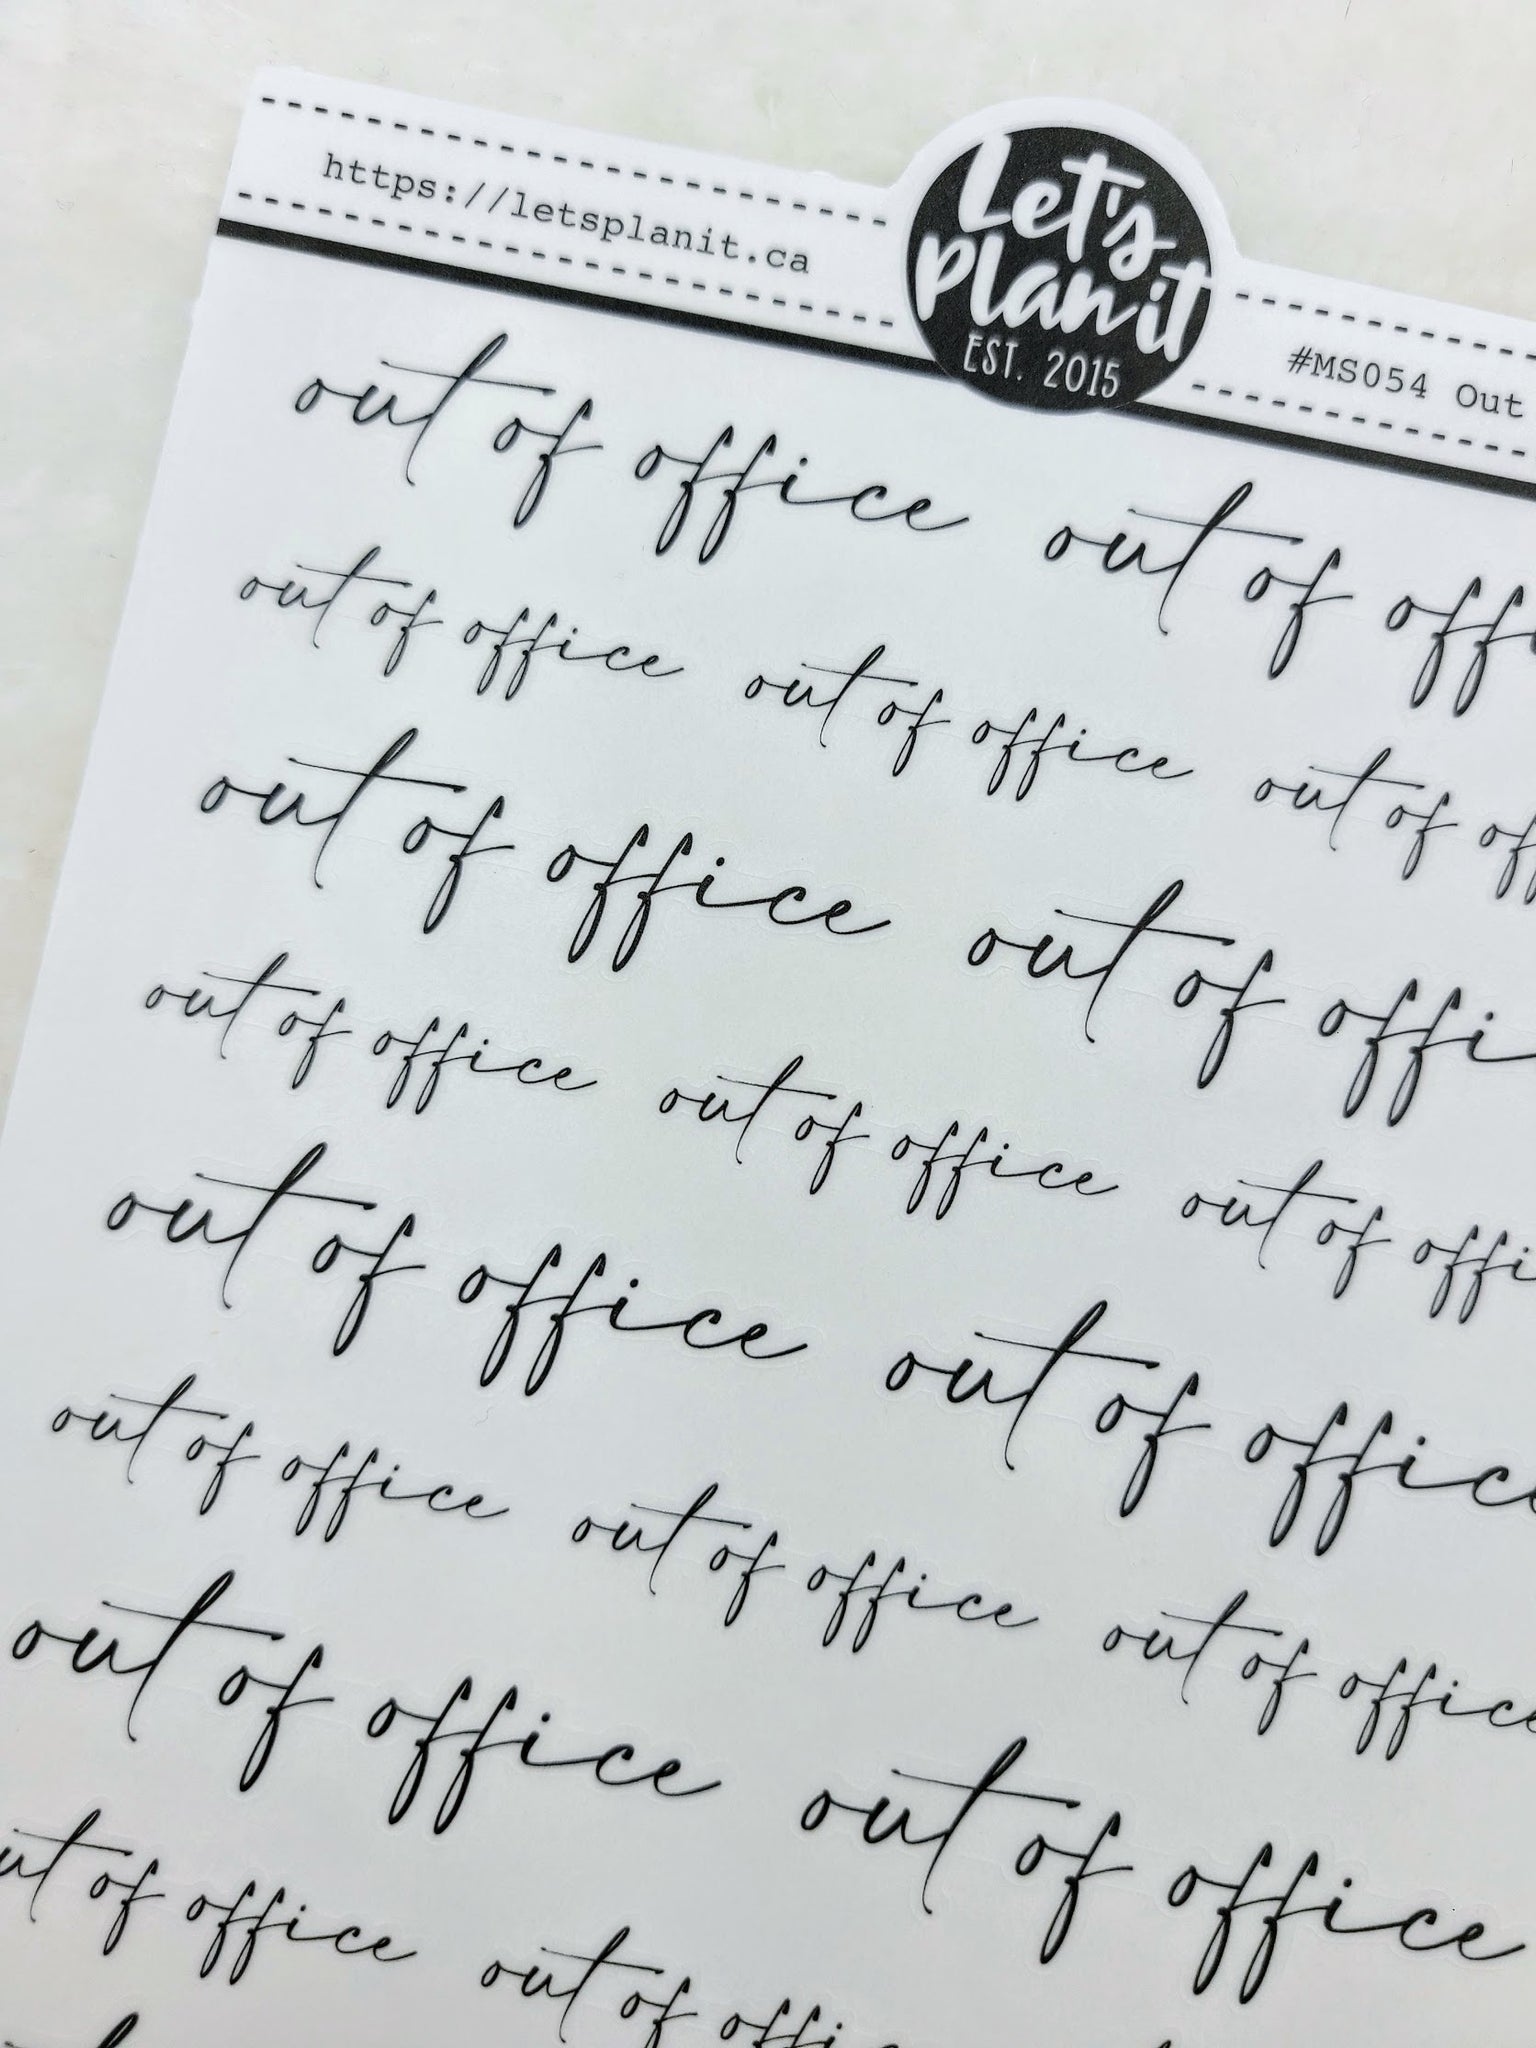 https://letsplanit.ca
Let's
Plan it
EST. 2015
#MS054 Out
out of office out of offi
out of office out of office out of of
out of office out of offi
out of office out of office out of offi
out of office out of office
out of office out of office out of office
out of office out of office
ut of office out of offi